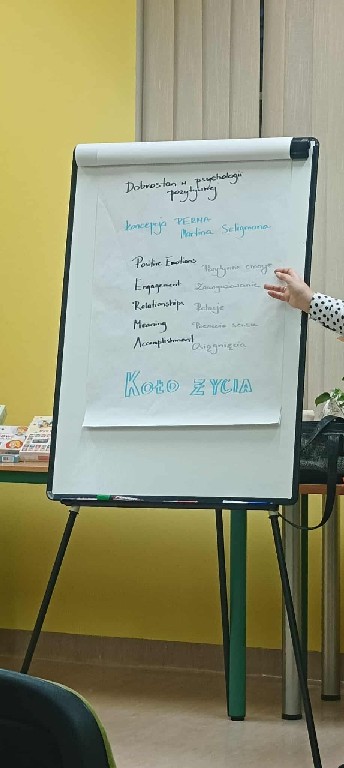 Dobrostan w psychologii
pozytywnej
Koncepcja PERMA
Martina Seligmana
Positive Emotions Pozytywne emocje
Engagement Zaangażowanie
Relationships Relacje
Meaning Poczucie sensu
Accomplishment Osiągnięcia
KOŁO ŻYCIA